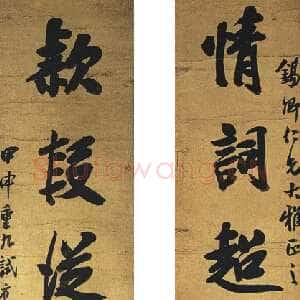 錫卿仁兄大雅正之
情詞超
款段從
甲申重九試